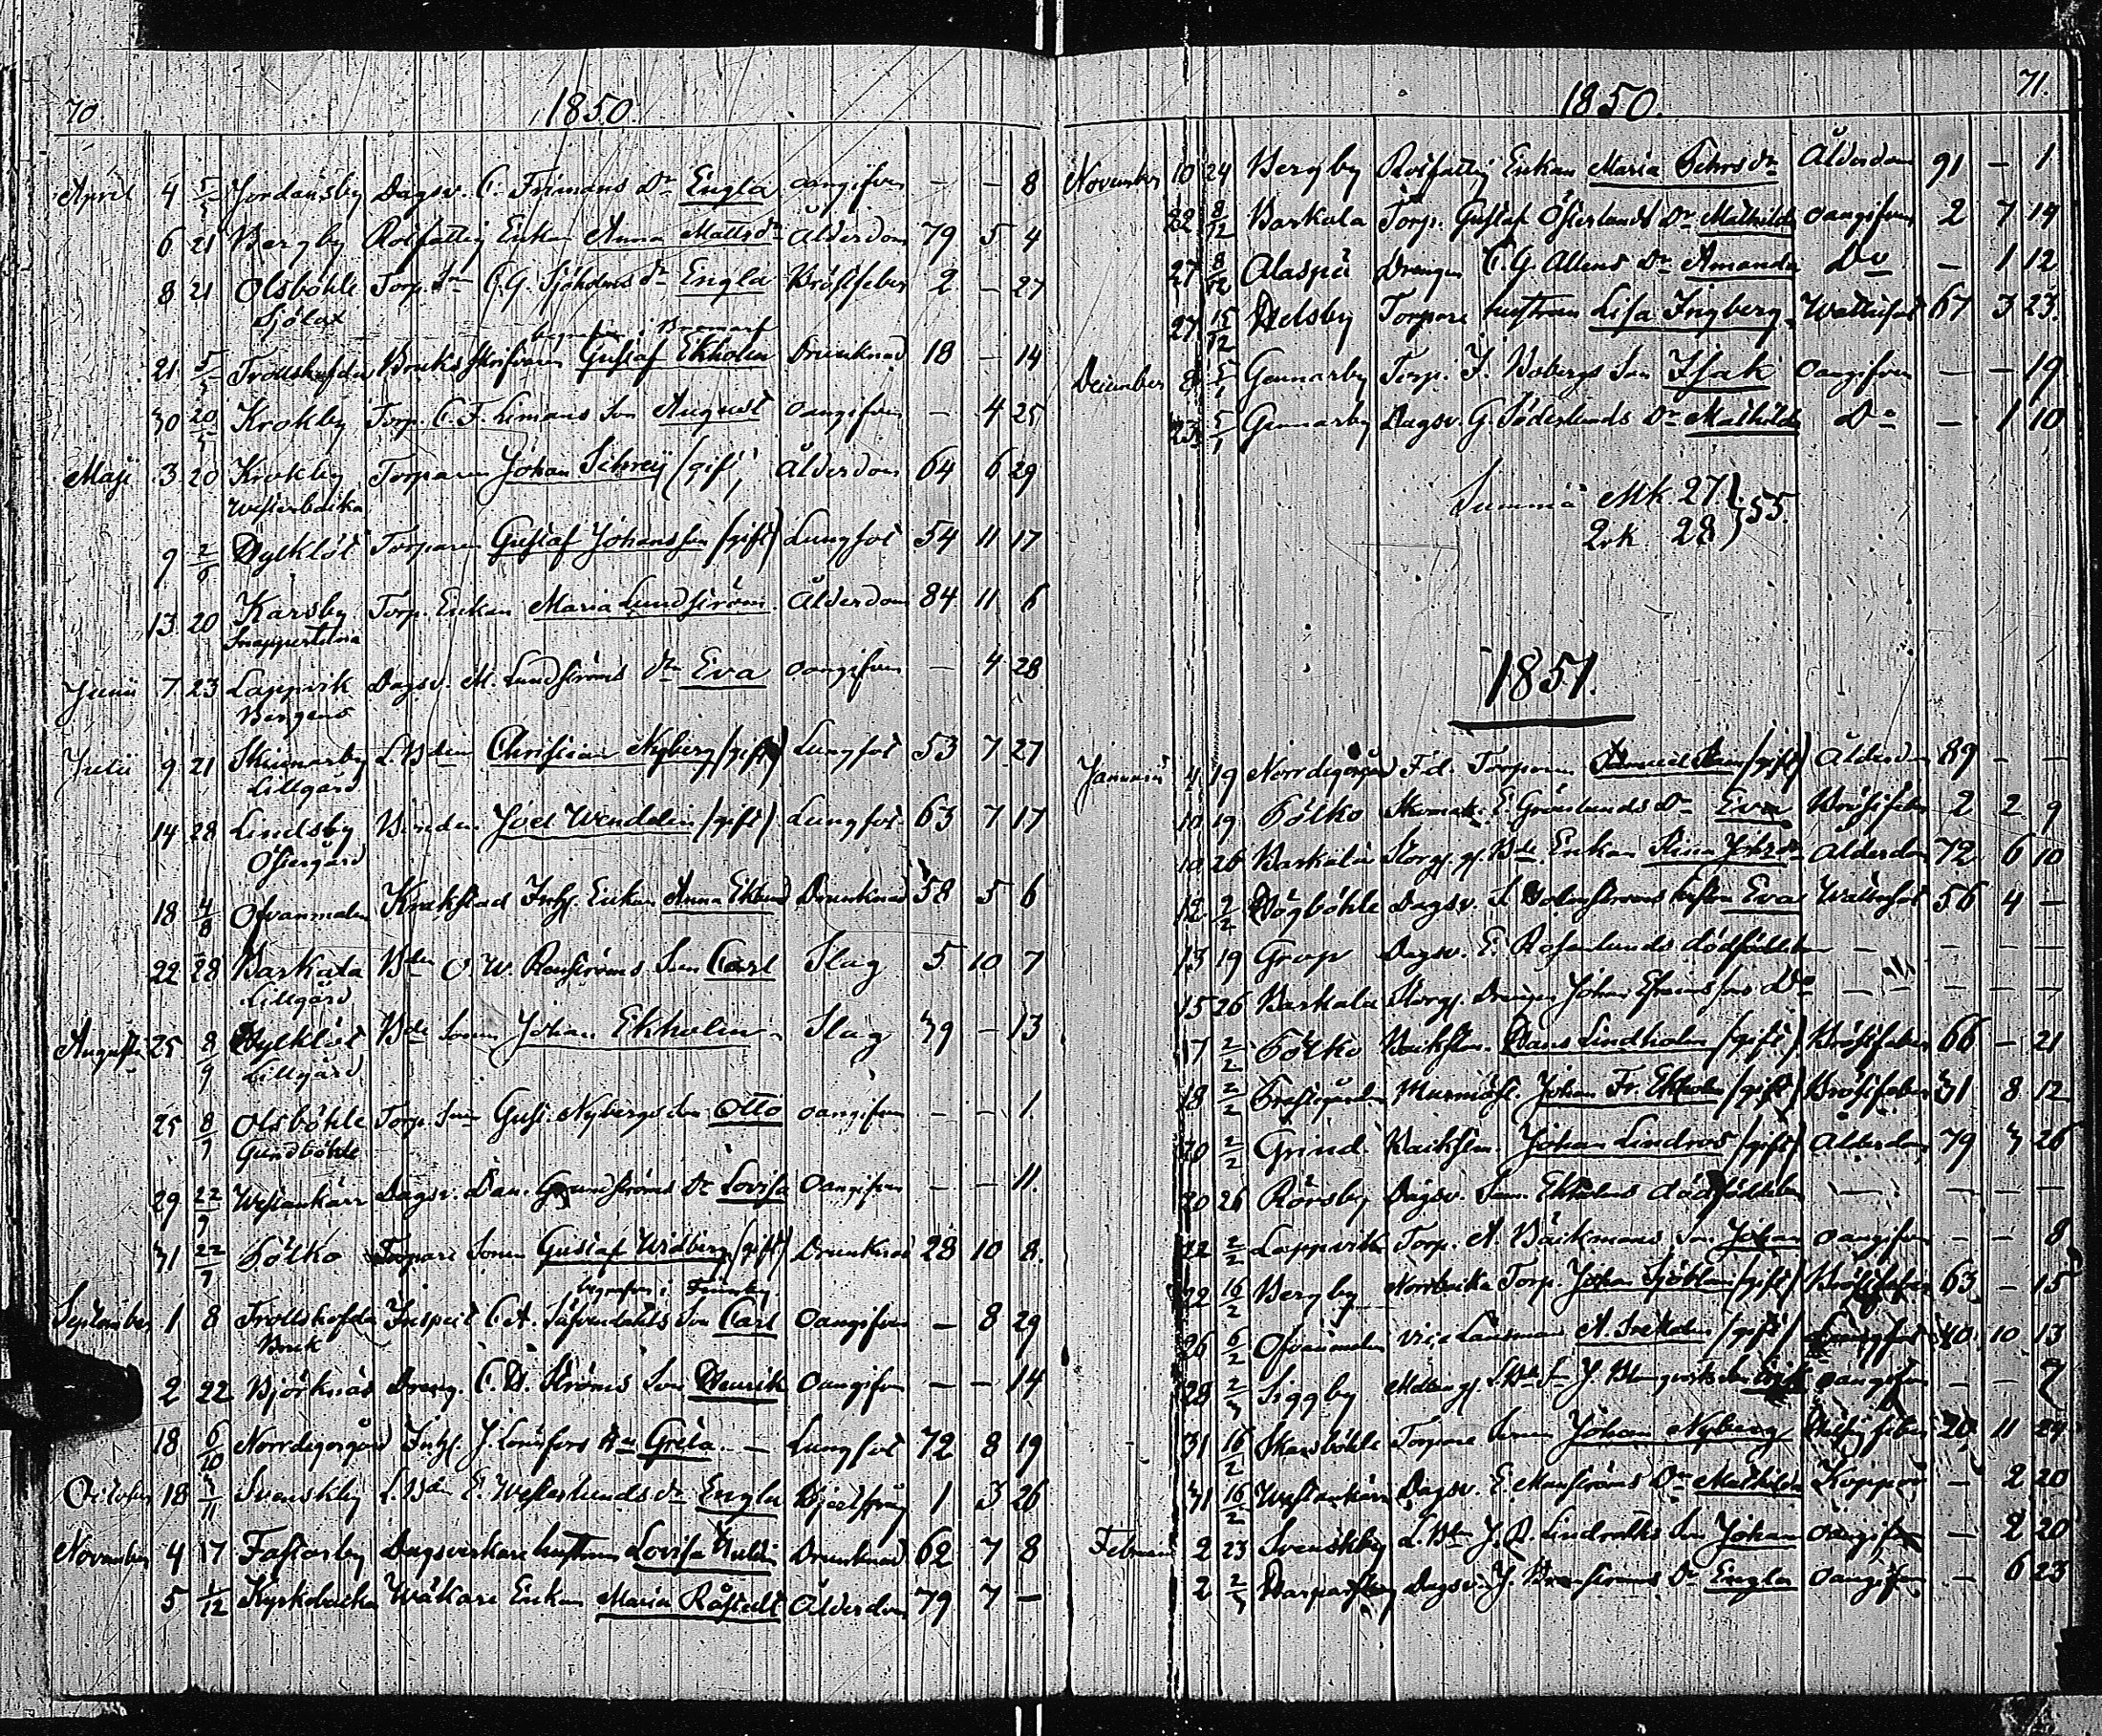 70. 1850.
April 4 5/5 Jordansby Dagsv. C. Frimans Dr Engla oangifven — — 8
6 21 Bergby Rotfattig Enkan Anna Mattsdr Ålderdom 79 5 4
8 21 Olsböhle Torp. Sn C. G. Sjöholms dr Engla Bröstfeber 2 — 27
Sjölax
begrafven i Bromarf
21 5/5 Trollshofda Bruks Skrifvaren Gustaf Ekholm Drunknad 18 — 14
30 20/5 Krokby Torp. C. F. Lemans Son August oangifven — 4 25
Maji 3 20 Krokby Torparen Johan Schrey (gift) Ålderdom 64 6 29
Westerbacka
9 2/6 Torparen Gustaf Johansson (gift) Lungsot 54 11 17
13 20 Karsby Torp. Enkan Maria Lundström Ålderdom 84 11 6
Snappertuna
Junii 7 23 Lappvik Dagsv. M. Lundströms dr Eva oangifven — 4 28
Bergens
Julii 9 21 Skinnarby L. Bden Christian Nyberg (gift) Lungsot 53 7 27
Lillgård
14 28 Lindsby Bonden Joel Wendelin (gift) Lungsot 63 7 17
Östergård
18 4/8 Ofvanmalm Inhs. Enkan Anna Eklund Drunknad 58 5 6
22 28 Barkala Bden O. W. Renströms Son Carl Slag 5 10 7
Lillgård
Augusti 25 8/9 Bde Sonen Johan Ekholm Slag 39 — 13
Lillgård
25 8/9 Olsböhle Torp. Son Gust. Nybergs Son Otto oangifven — — 1
Gundböhle
29 22/9 Westankärr Dagsv. Dan. Grundströms Dr Lovisa Oangifven — — 11.
31 22/9 Torpare Sonen Gustaf Widberg (gift) Drunknad 28 10 8.
begrafven i Finnby
September 1 8 Trollshofda Inspect. C. A. Son Carl Oangifven — 8 29
Bruk
2 22 Björknäs Dreng. C. H. Ströms Son Henrik Oangifven — — 14
18 6/10 Norrdegergård Inhs. J. Lönnfors Greta — Lungsot 72 8 19
October 18 3/11 Svenskby L. Bden E. Westerlunds dr Engla 1 3 26
November 4 17 Fastarby Dagsverkare hustrun Lovisa Drunknad 62 7 8
5 1/12 Kyrkobacka Enkan Maria Ålderdom 79 7 —
1850. 71.
November 10 24 Bergby Rotfattig Enkan Maria Ålderdom 91 — 1
22 8/12 Barkala Torp. Gustaf Österlunds Dr Mathilda oangifven 2 7 19
27 8/12 Alaspä Drengen C. G. Allens Dr Amanda Do — 1 12
27 15/12 Torpare hustrun Lisa Ingberg Wattusot 67 3 23.
December 8 5/1 Gennarby Torp. J. Bobergs Son Isak Oangifven — — 19
23 5/1 Gennarby Dagsv. G. Söderlunds Dr Mathilda Do — 1 10
Summa Mk. 27 } 55.
Qvk. 28
1851.
Januarii 4 19 Norrdegergård F. d. Torparen Samuel (gift) Ålderdom 89 — —
10 19 E. Grönlunds Dr Eva Bröstfeber 2 2 9
10 26 Barkala Storg. Bde Enkan Stina Johsdr Ålderdom 72 6 10
12 2/2 Dagsv. hustru Eva Wattusot 56 4 —
13 19 Grop Dagsv. E. Rosenlunds dödfödda — — — —
15 26 Barkala Storg. Drengen Johan Do — — — —
17 2/2 Lindholm (gift) Bröstfeber 66 — 21
18 2/2 Prestgården Johan Fr. Ekholm (gift) Bröstfeber 31 8 12
20 2/2 Grind Backstun. Johan Lindros (gift) Ålderdom 79 3 26
20 26 Rörsby Dagsv. Sam. Ekholms dödfödda — — — —
22 2/2 Lappvik Torp. A. Bäckmans Son Johan oangifven — — 8
22 16/2 Bergby Norrbacka Torp. Johan Sjöblom (gift) Bröstfeber 63 — 15
26 6/2 Ofvanmalm Vice Länsman A. (gift) Lungsot 40 10 13
28 2/3 Siggby Mellang. J. Blomqvists Son oangifven — — 7
31 16/2 Skarsböhle Torpare Sonen Johan Nyberg feber 20 11 24
31 16/2 Westankärr Dagsv. E. Dr Mathilda Koppor — 2 20
Februari 2 23 Svenskby L. Bden Son Johan oangifven — 2 20
2 2/3 Dagsv. J. Dr Engla oangifven — 6 23